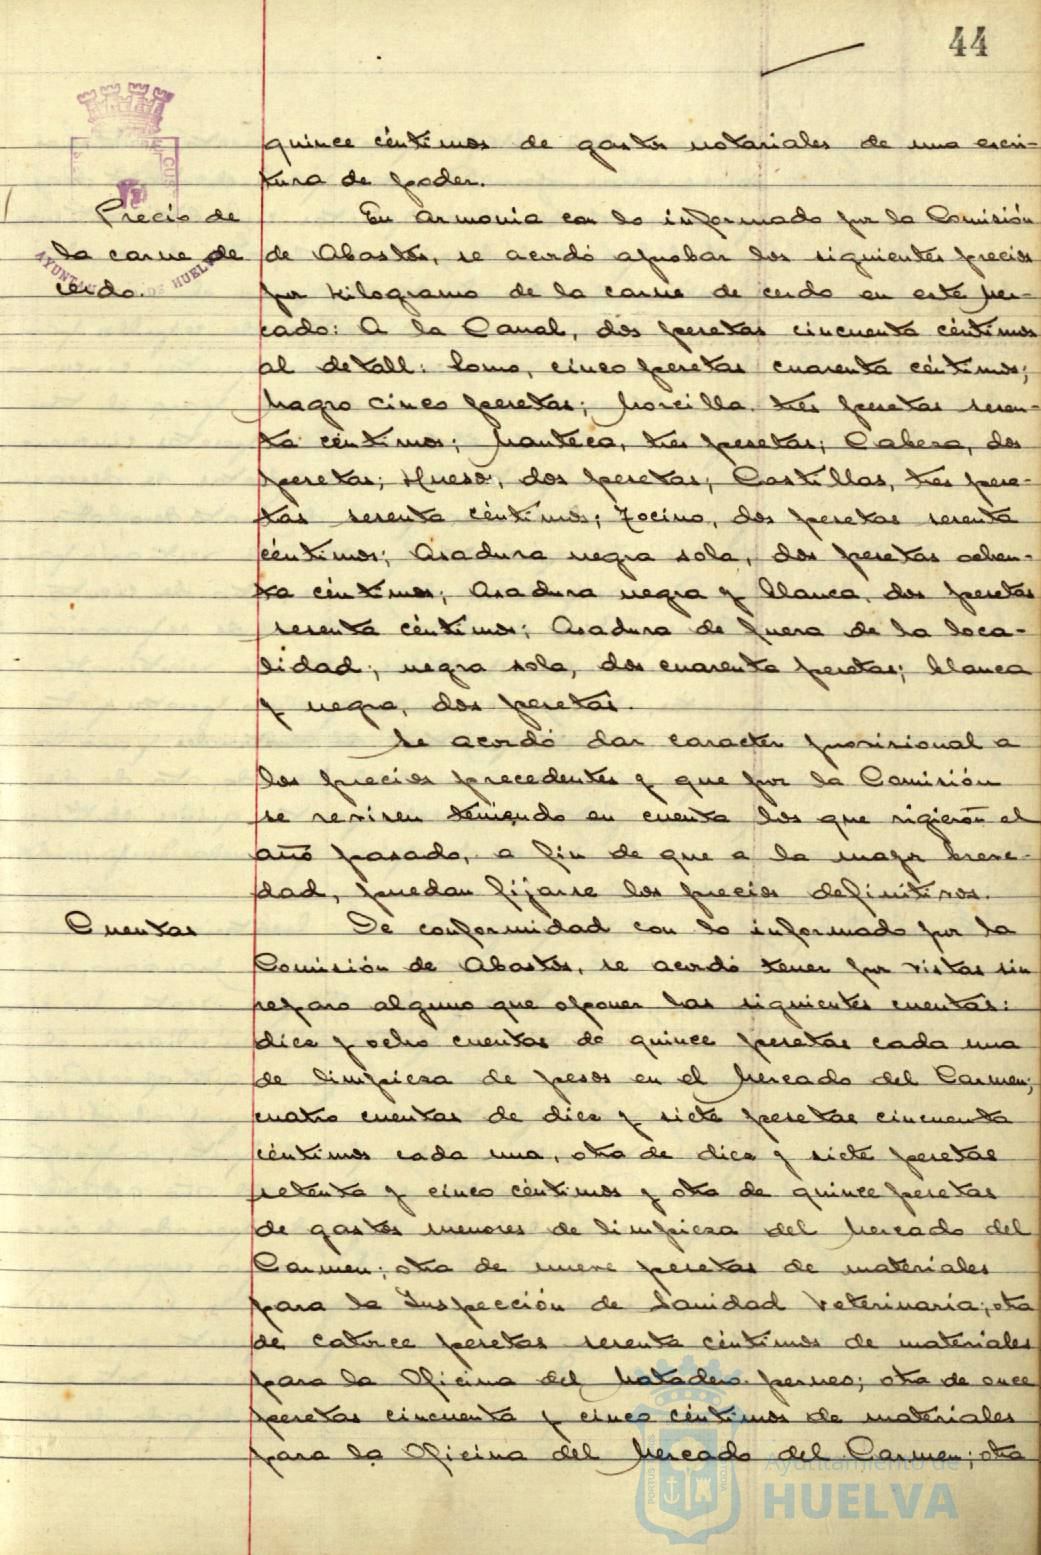 44
quince céntimos de gastos notariales de una escri-
tura de poder.
Precio de
la carne de
cerdo.
En armonía con lo informado por la Comisión
de Abastos, se acordó aprobar los siguientes precios
por kilogramo de la carne de cerdo en este Mer-
cado: A la Canal, dos pesetas cincuenta céntimos
al detall: Lomo, cinco pesetas cuarenta céntimos;
Magro cinco pesetas; Morcilla tres pesetas sesen-
ta céntimos; Manteca, tres pesetas; Cabeza, dos
pesetas; Hueso, dos pesetas; Costillas, tres pese-
tas sesenta céntimos; Tocino, dos pesetas sesenta
céntimos; Asadura negra sola, dos pesetas ochen-
ta céntimos; Asadura negra y blanca, dos pesetas
sesenta céntimos; Asadura de fuera de la loca-
lidad; negra sola, dos cuarenta pesetas; blanca
y negra, dos pesetas.
Se acordó dar caracter provisional a
los precios precedentes y que por la Comisión
se revisen teniendo en cuenta los que rigieron el
año pasado, a fin de que a la mayor breve-
dad, puedan fijarse los precios definitivos.
Cuentas
De conformidad con lo informado por la
Comisión de Abastos, se acordó tener por vistas sin
reparo alguno que oponer las siguientes cuentas:
diez y ocho cuentas de quince pesetas cada una
de limpieza de pesos en el Mercado del Carmen;
cuatro cuentas de diez y siete pesetas cincuenta
céntimos cada una, otra de diez y siete pesetas
setenta y cinco céntimos y otra de quince pesetas
de gastos menores de limpieza del Mercado del
Carmen; otra de nueve pesetas de materiales
para la Inspección de Sanidad Veterinaria; otra
de catorce pesetas sesenta céntimos de materiales
para la Oficina del Matadero perneo; otra de once
pesetas cincuenta y cinco céntimos de materiales
para la Oficina del Mercado del Carmen; otra
Ayuntamiento de
HUELVA